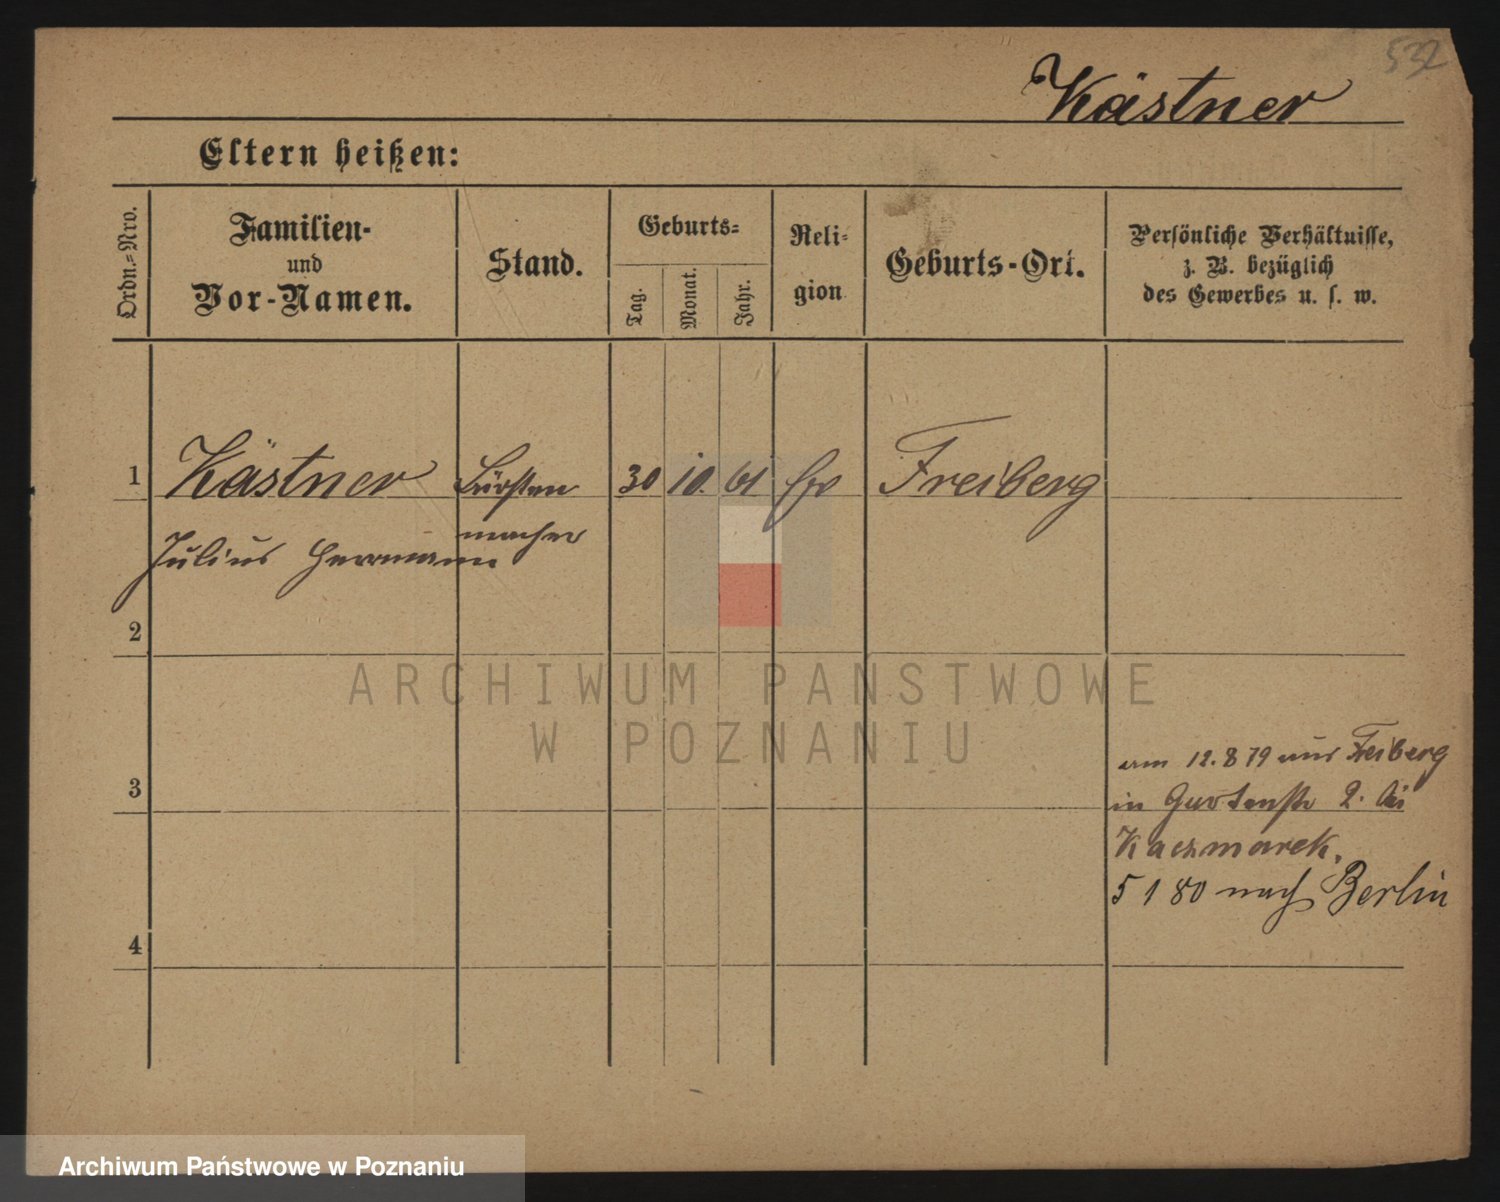 532
Kästner
Eltern heißen:
Ordn.=Nro.
Familien-
und
Vor-Namen.
Stand.
Geburts=
Tag.
Monat.
Jahr.
Reli=
gion
Geburts-Ort.
Persönliche Verhältnisse,
z. B. bezüglich
des Gewerbes u. s. w.
1
Kästner
Bürsten
30
10.
61
Freiberg
macher
Julius Herrmann
2
ARCHIWUM PANSTWOWE
W POZNANIU
3
am 12. 8 79 aus Freiberg
in Gartenstr 2. bei
Kaczmarek.
5 1 80 nach Berlin
4
Archiwum Państwowe w Poznaniu